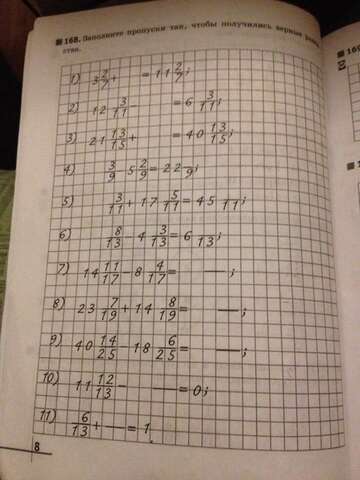 168. Заполните пропуски так, чтобы получились верные
ства.
1) 3 2/7 + = 11 2/7;
2) 12 3/11 = 6 3/11;
3) 21 13/15 + = 40 13/15;
4) 3/9 5 2/9 = 22 /9;
5) 3/11 + 17 5/11 = 45 /11;
6) 8/13 - 4 3/13 = 6 /13;
7) 14 11/17 - 8 4/17 = —;
8) 23 7/19 + 14 8/19 = —;
9) 40 14/25 18 6/25 = —;
10) 11 12/13 - — = 0;
11) 6/13 + — = 1
8
169